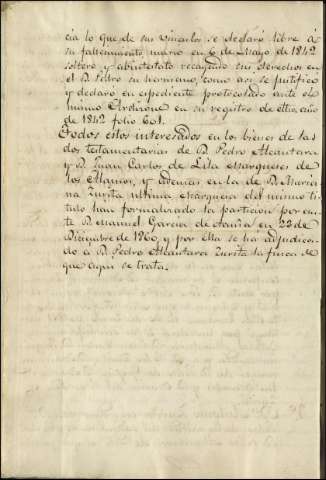 cia lo que de sus vinculos se declaró libre á
su fallecimiento, murio en 6 de Mayo de 1842
soltero y abintestato recayendo sus derechos en
el D. Pedro su hermano, como asi se justificó
y declaró en espediente protocolado ante el
mismo en su registro de dho. año
de 1842 folio 601.
Todos estos interesados en los bienes de las
dos testamentarias de D. Pedro Alcantara
y D. Juan Carlos de Lila Marqueses de
los Alamos, y ademas en la de D.ª Maria
na Zurita ultima Marquesa del mismo ti
tulo han formalizado la particion por an
te D. Manuel Garcia de en 22 de
Diciembre de 1860, y por ella se ha adjudica
do á D. Pedro Alcantara Zurita la finca de
que aqui se trata.